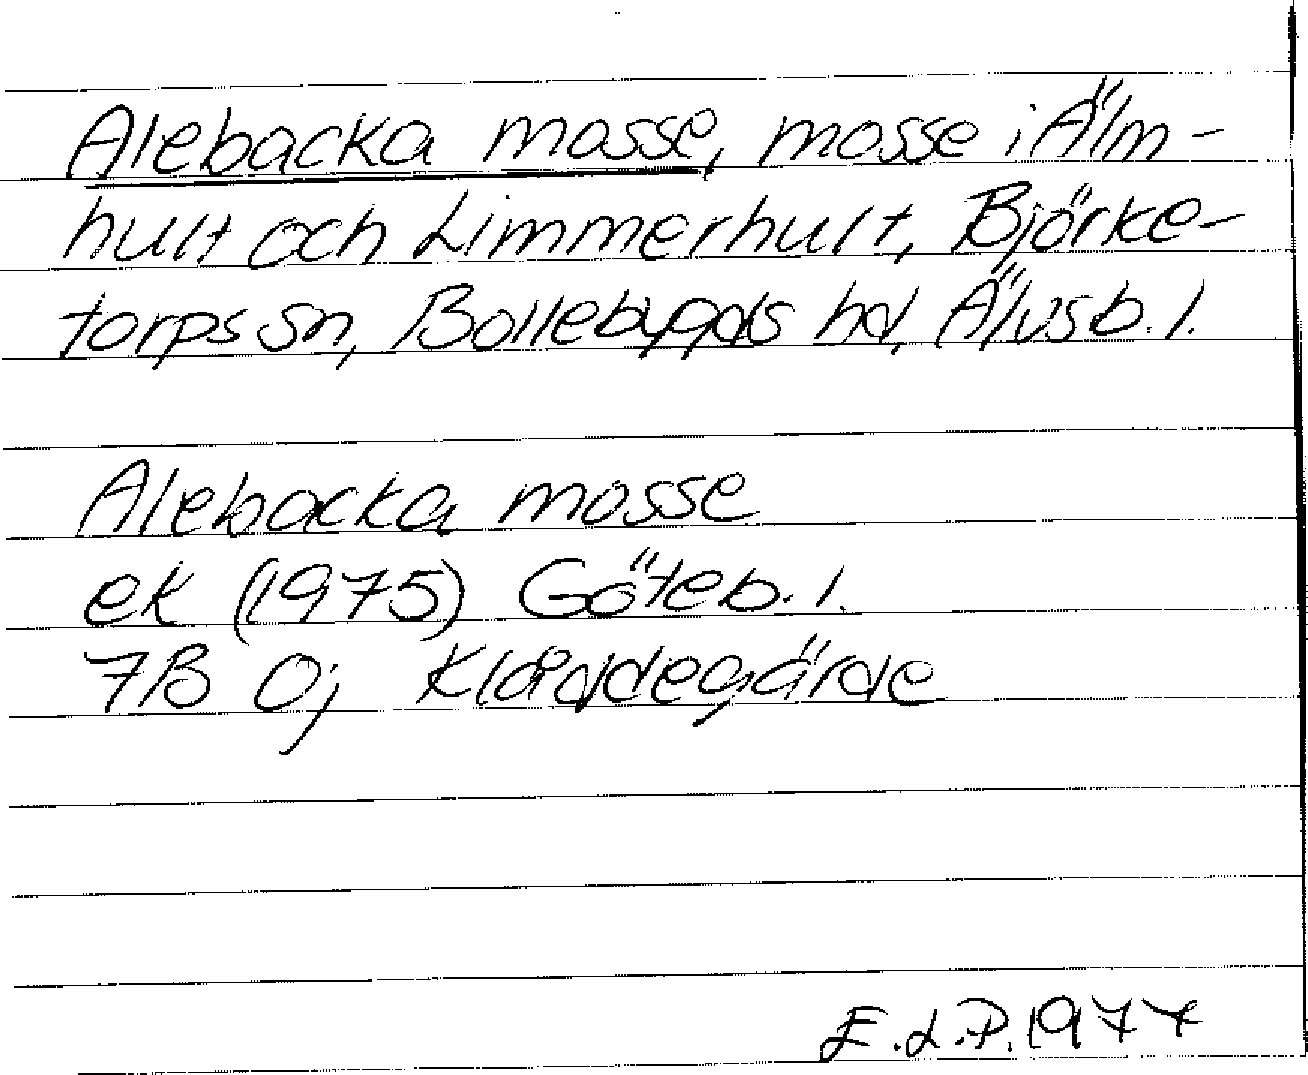 Alebacka mosse, mosse i Älm-
hult och Limmerhult, Björke-
torps sn, Bollebygds hd, Älvsb. l.
Alebacka mosse
ek (1975) Göteb. l.
7B 0j Kloddegärde
E.L.P. 1977